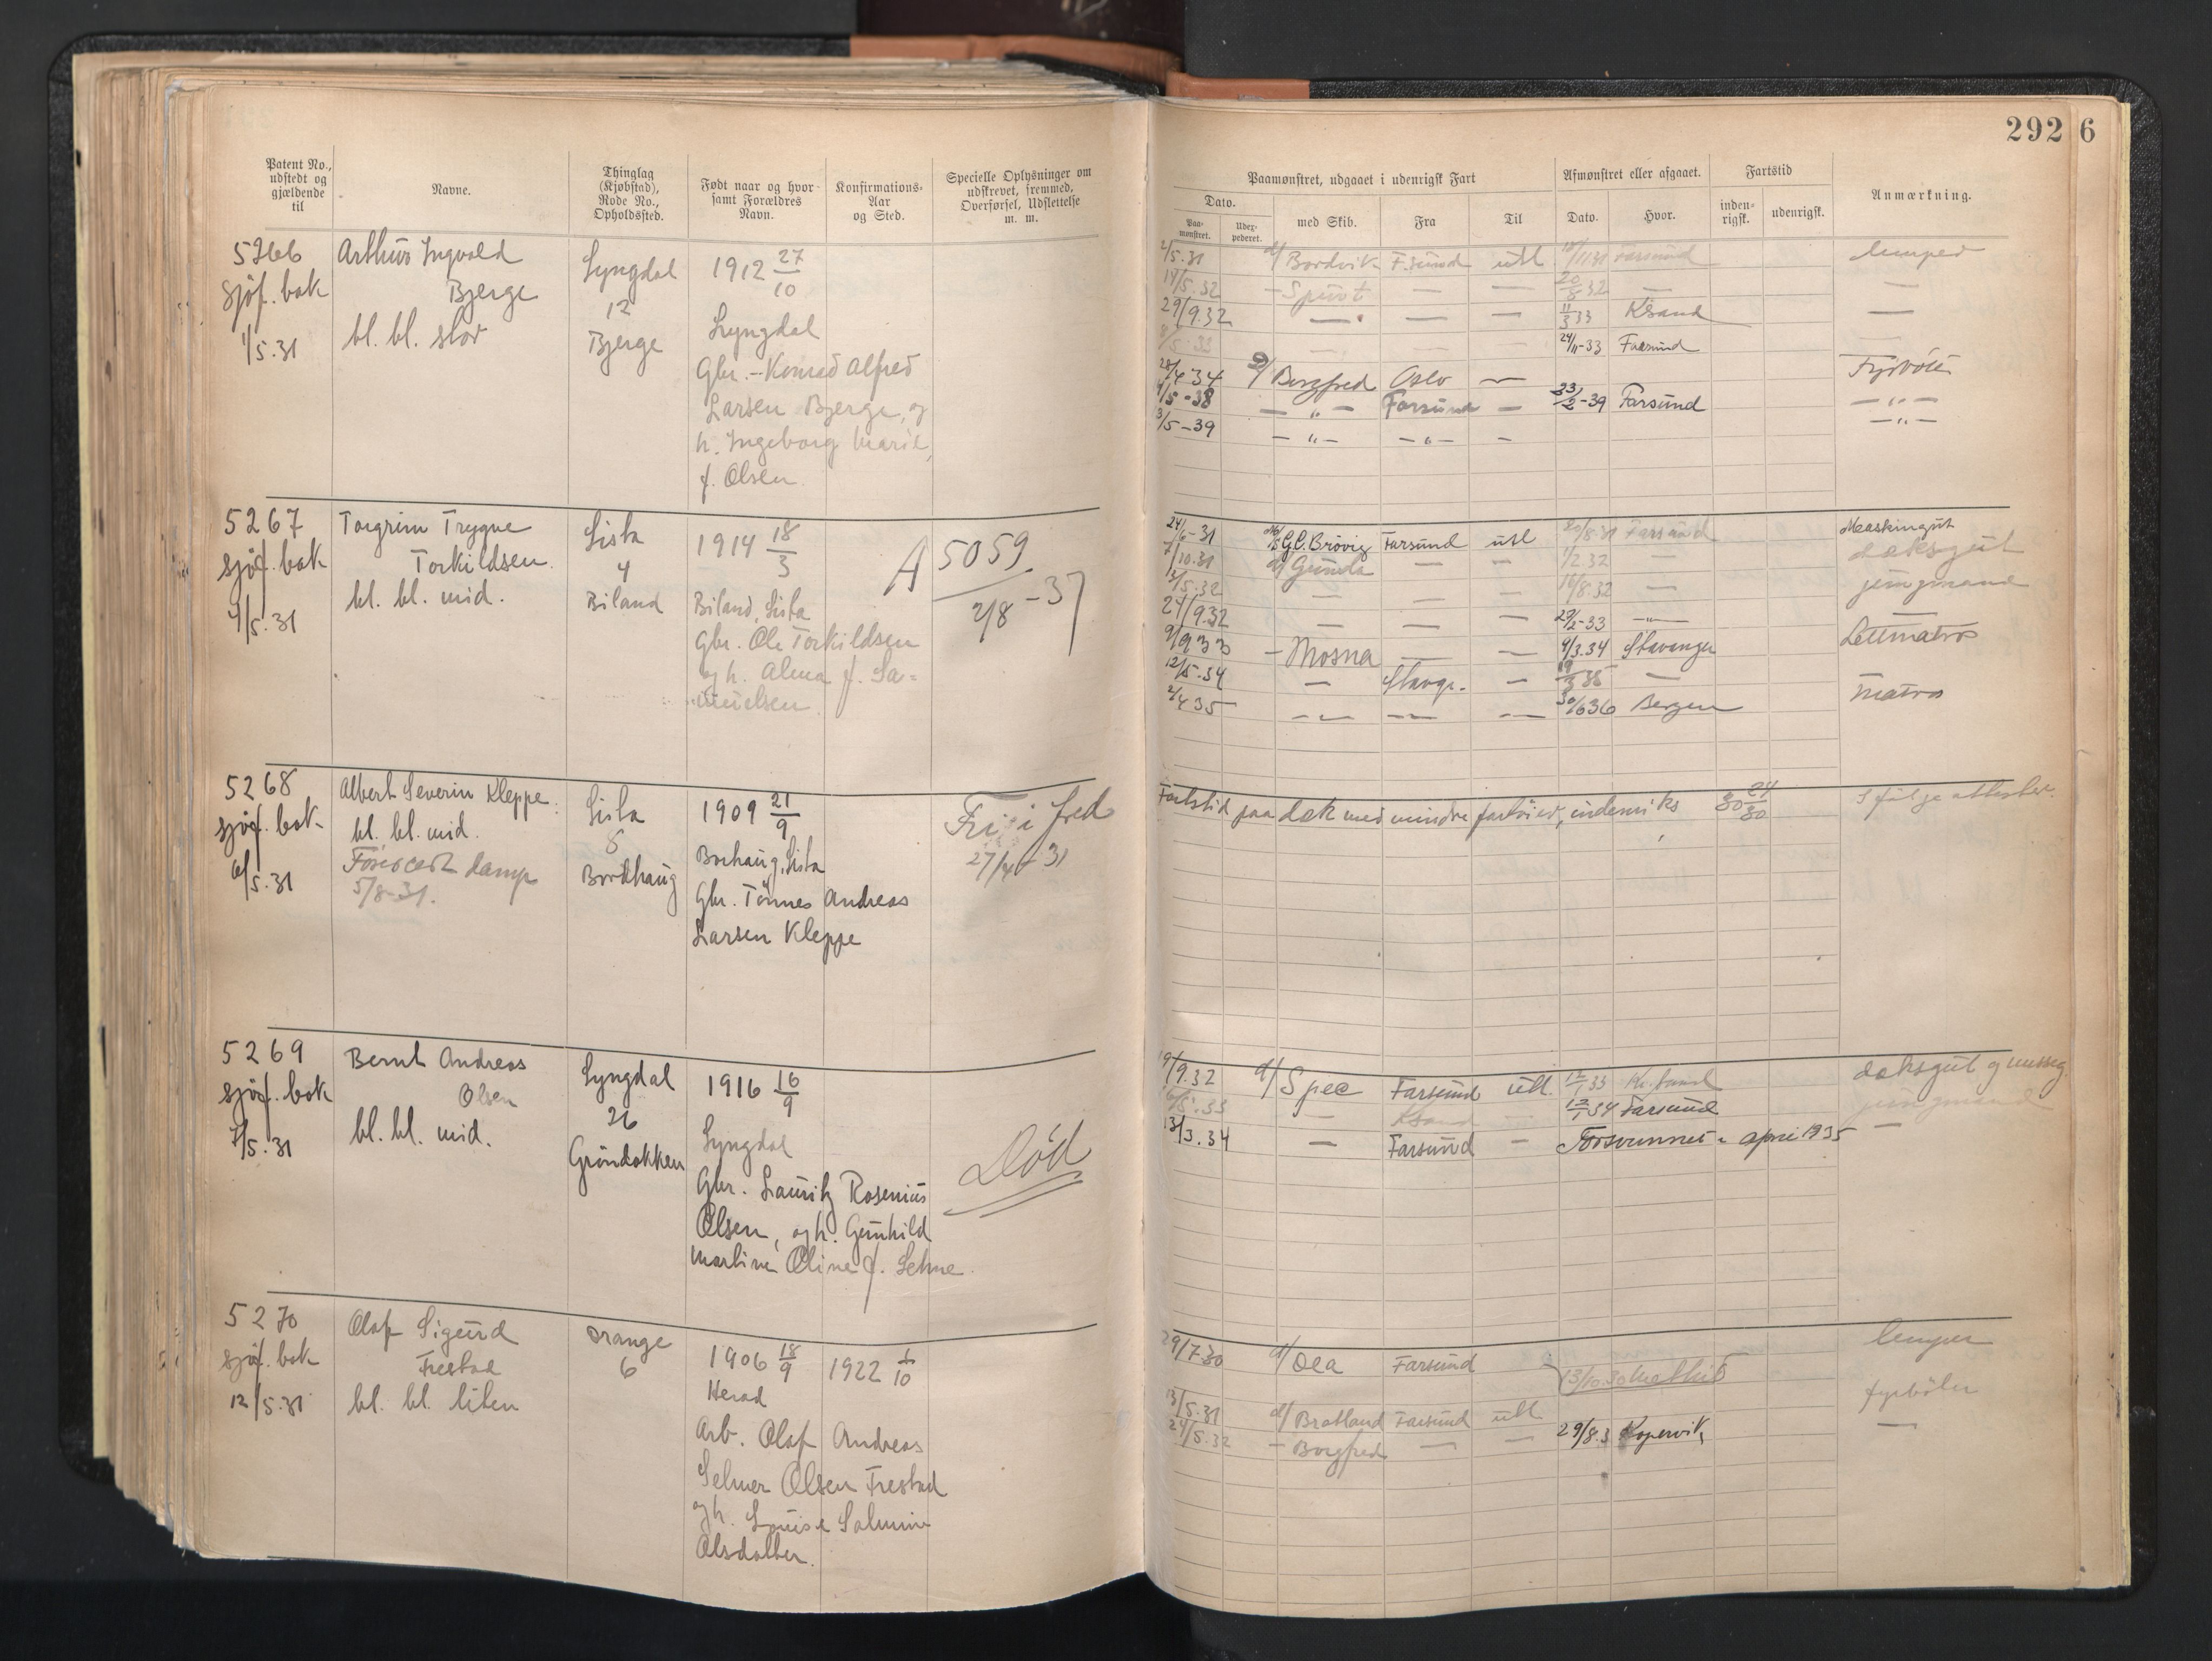 292 6
Patent No., udstedt og gjældende til
Navne.
Thinglag (Kjøbstad), Rode No., Opholdssted.
Født naar og hvor samt Forældres Navn.
Konfirmations-Aar og Sted.
Specielle Oplysninger om udskrevet, fremmed, Overførsel, Udslettelse m. m.
Paamønstret, udgaaet i udenrigsk Fart
Dato.
Paa-mønstret.
Udex-pederet.
med Skib.
Fra
Til
Afmønstret eller afgaaet.
Dato.
Hvor.
Fartstid
inden-rigsk.
udenrigsk.
Anmærkning.
5266
sjøf. bok
1/5.31
Arthur Ingvald
Bjerge
bl. bl. stor
Lyngdal
12
Bjerge
1912 27/10
Lyngdal
Gbr. - Konrad Alfred
Larsen Bjerge, og
h. Ingeborg Marie,
f. Olsen.
2/5.31 d/ Bordvik F.sund utl 18/11 31 Farsund lemper
19/5.32 - Spurt — — 20/8 32 — —
29/9.32 — — — 11/3 33 Ksand —
8/5 33 — — — 24/11-33 Farsund
28/4-34 D/ Borgfred Oslo — Fyrbøter
4/5-38 — " — Farsund — 23/2-39 Farsund — " —
3/5-39 — " — — " — — — " —
5267
sjøf. bok
4/5.31
Torgrim Trygve
Torkildsen.
bl. bl. mid.
Lista
4
Biland
1914 18/3
Biland, Lista
Gbr. Ole Torkildsen
og h. Alma f. Sa=
muelsen
A 5059
2/8-37
24/6-31 M/S G.C. Brøvig Farsund utl 20/8.31 Farsund Maskingut
7/10.31 d/ Gunda — — 1/2.32 — dæksgut
13/5.32 — — — 16/8.32 — jungmand
24/9.32 — — — 29/2-33 — " —
9/9 33 - Mosna — — 9/3.34 Stavanger Lettmatros
12/5-34 — Stavgr. — 19/3 35 —
2/4 35 — — — 30/6 36 Bergen Matros
5268
sjøf. bok
6/5.31
Albert Severin Kleppe.
bl. bl. mid.
Førercert damp
5/8-31.
Lista
8
Bordhaug
1909 21/9
Borhaug, Lista
Gbr. Tønnes Andreas
Larsen Kleppe
Fri i fred
27/4-31
Fartstid paa dæk med mindre fartøier, indenriks 30 24/30 I følge attester.
5269
sjøf. bok
7/5.31
Bernt Andreas
Olsen
bl. bl. mid.
Lyngdal
26
Grøndokken
1916 16/9
Lyngdal
Gbr. Lauritz Rosenius
Olsen, og h. Gunhild
Martine Oline f. Sehne.
Død
19/9.32 d/ Spec Farsund utl. 12/1 33 Kr.sund dæksgut g messeg.
16/5.33 — Ksand 12/1 34 Farsund jungmand
13/3.34 — Farsund — Forsvunnet i april 1935 —
5270
sjøf. bok
12/5.31
Olaf Sigurd
Frestad
bl. bl. liten
Drange
6
1906 18/9
Herad
Arb. Olaf Andreas
Selmer Olsen Frestad
og h. Louise Salmine
Olsdatter.
1922 1/10
29/7-30 d/ Oea Farsund 13/10.30 Methil lemper
13/5.31 d/ Bratland Farsund utl fyrbøter
24/5.32 - Borgfred — — 29/8.3 Kopervik —